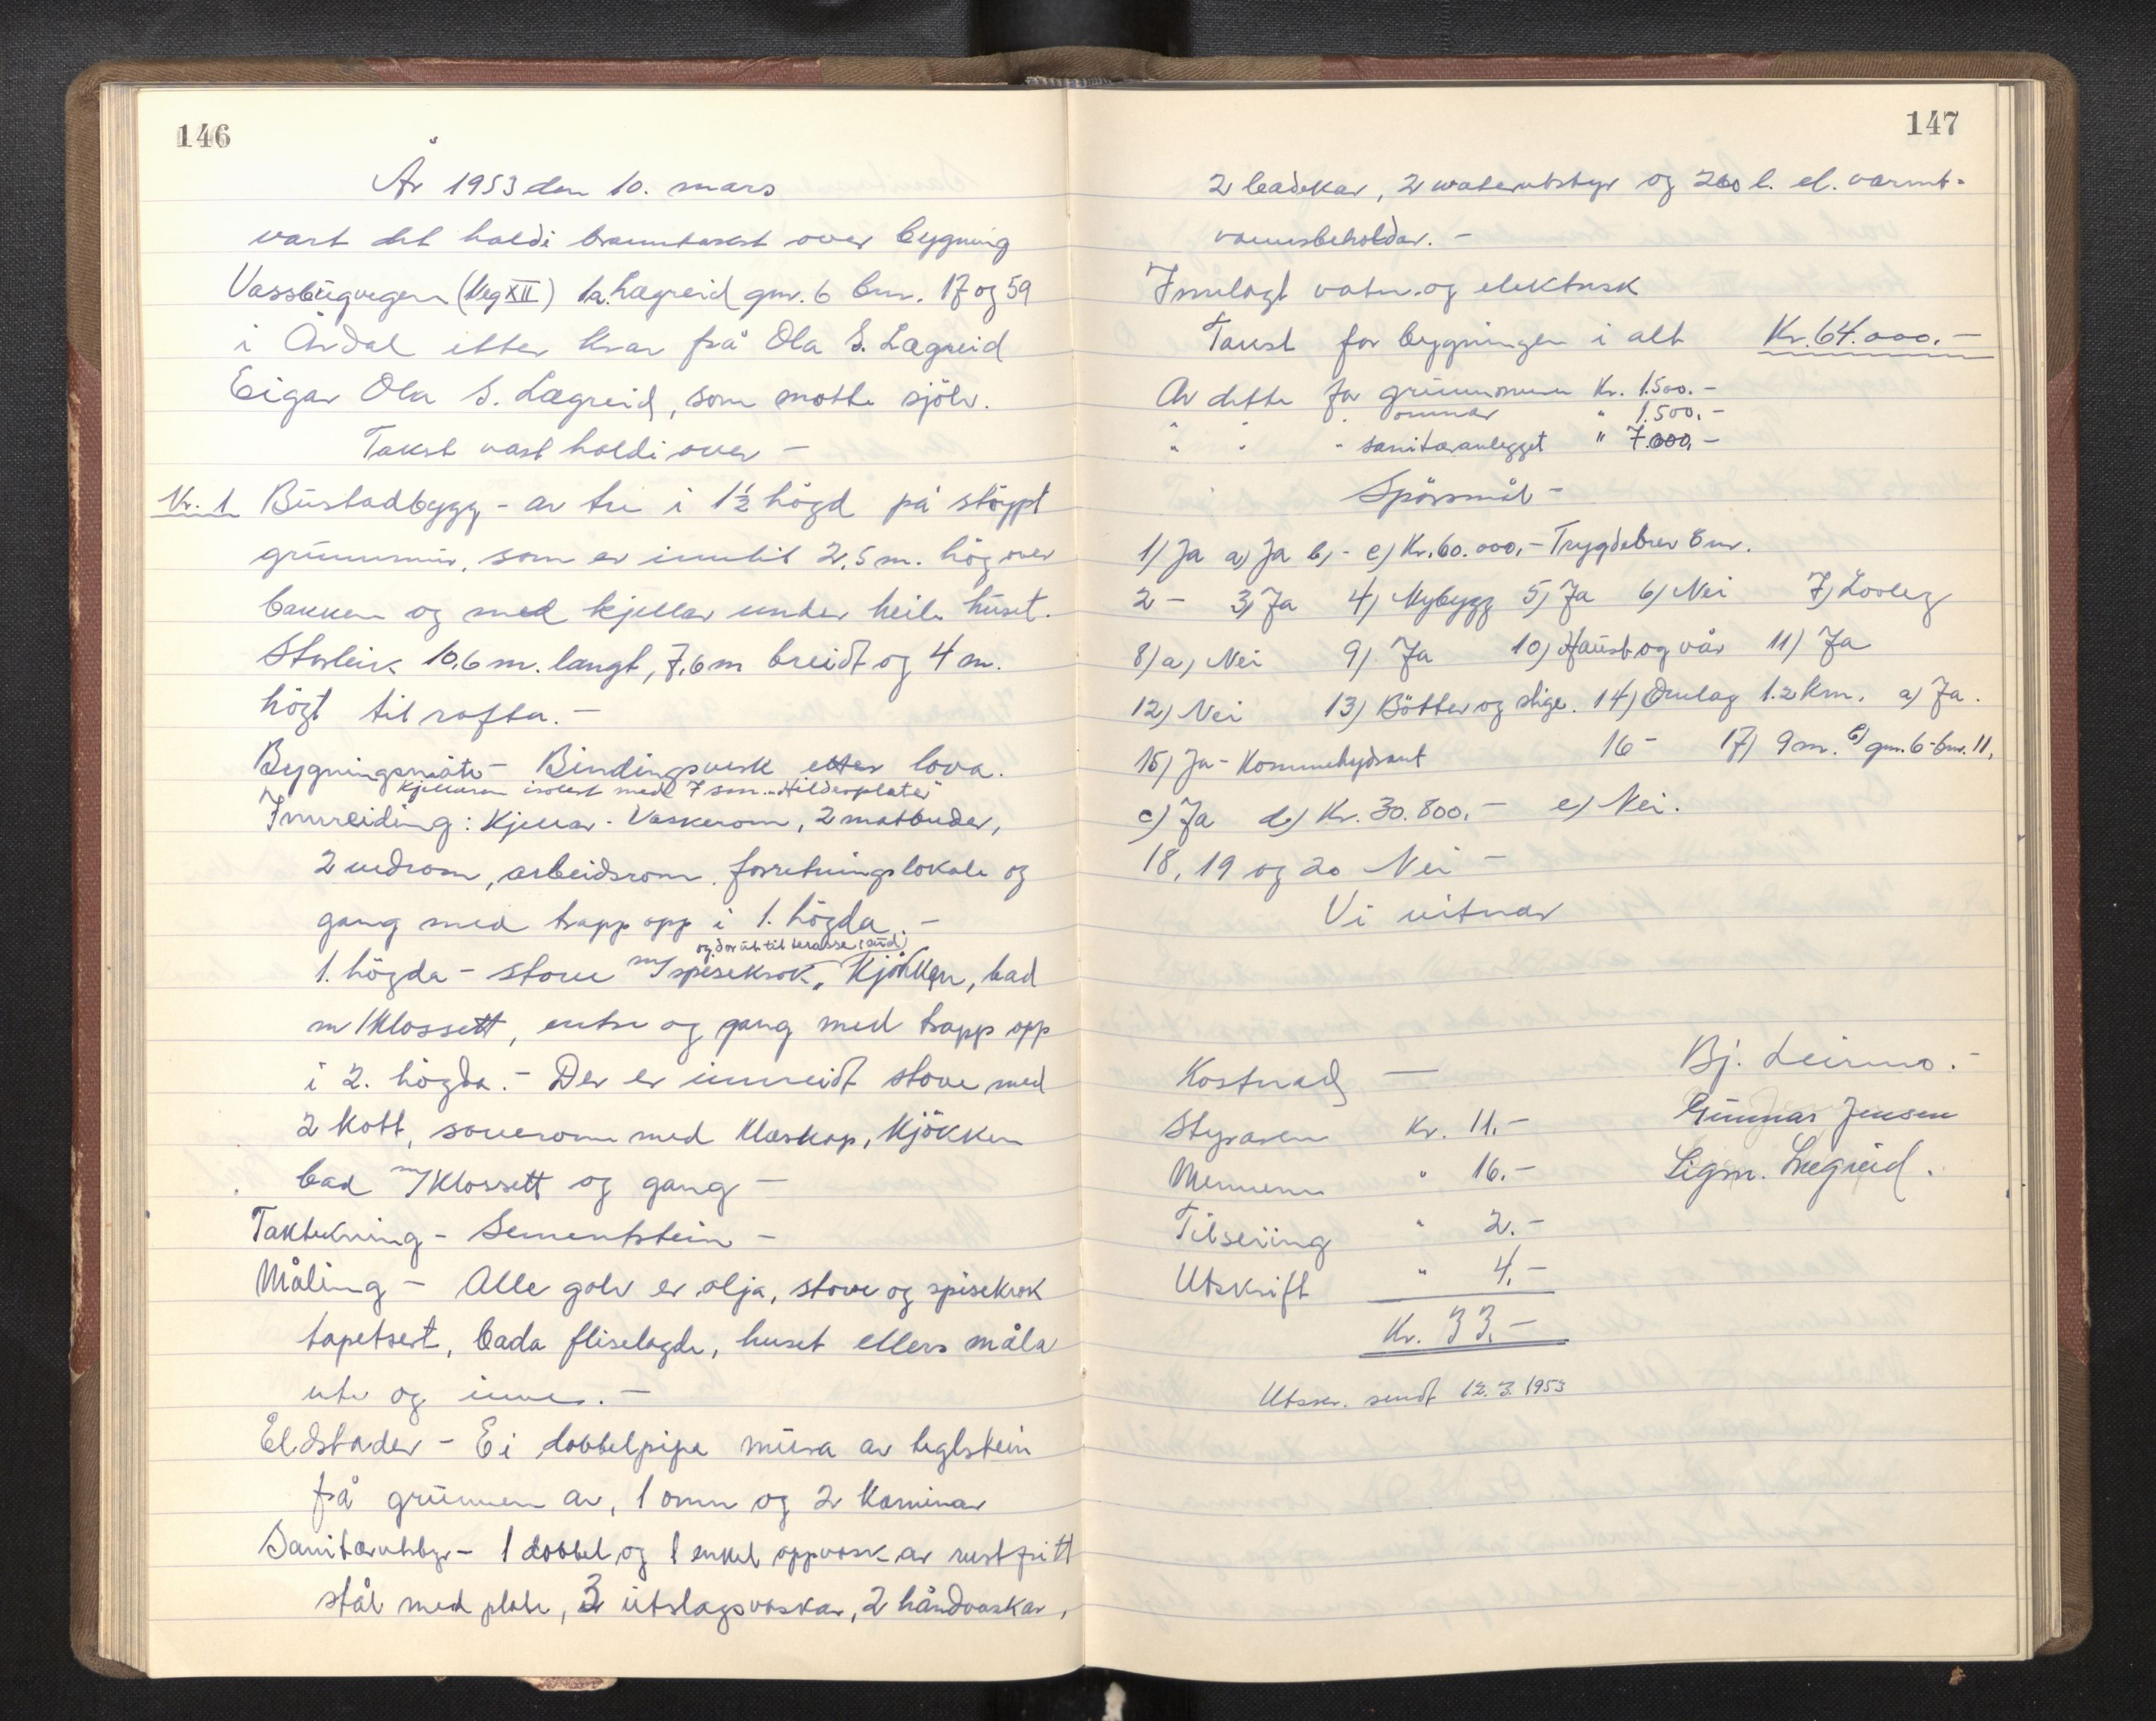 146
År 1953 den 10. mars
vart det haldi branntakst over bygning
Vassbygvegen (Veg XII) Lægreid gnr. 6 bnr. 17 og 59
i Årdal etter krav frå Ola S. Lægreid
Eigar Ola S. Lægreid, som møtte sjölv.
Takst vart haldi over -
Nr. 1 Bustadbygg - av tre i 1½ högd på stöypt
grunnmur, som er inntil 2,5 m. hög over
bakken og med kjellar under heile huset.
Storleik 10,6 m. langt, 7,6 m breidt og 4 m.
högt til rafta. -
Bygningsmåte - Bindingsverk etter lova.
Kjellaren isolert med 7 sm. "Hilderplater"
Innreiding: Kjellar - Vaskerom, 2 matbuder,
2 vedrom, arbeidsrom, forretningslokale og
gang med trapp opp i 1. högda. -
og dør ut til terasse (aud)
1. högda - stove m/spisekrok, Kjökken, bad
m/Klossett, entre og gang med trapp opp
i 2. högda. - Der er innreidt stove med
2 kott, soverom med klæskap, Kjökken
bad m/Klossett og gang -
Taktekning - Sementstein -
Måling - Alle golv er olja, stove og spisekrok
tapetsert, bada fliselagde, huset ellers måla
ute og inne. -
Eldstader - Ei dobbelpipe mura av teglstein
frå grunnen av, 1 omn og 2 kaminar
Sanitærutstyr - 1 dobbel og 1 enkel oppvask av rustfritt
stål med plate, 3 utslagsvaskar, 2 håndvaskar,
147
2 badekar, 2 waterutstyr og 200 l. el. varmt-
vannsbeholdar. -
Innlagt vatn og elektrisk
Takst for bygningen i alt Kr. 64.000.-
Av dette for grunnmuren Kr. 1.500.-
" omnar " 1.500.-
" " " sanitæranlegget " 7.000.-
Spörsmål -
1) Ja a) Ja b) - c) Kr. 60.000.- Trygdebrev 8 nr.
2 - 3) Ja 4) Nybygg 5) Ja 6) Nei 7) Lovleg
8) a) Nei 9) Ja 10) Haust og vår 11) Ja
12) Nei 13) Bötter og stige. 14) Omlag 1.2 km. a) Ja.
15) Ja - Kommehydrant 16 - 17) 9 m. b) gnr. 6 - bnr. 11,
c) Ja d) Kr. 30.800.- e) Nei.
18, 19 og 20 Nei -
Vi vitnar
Bj. Leirmo. -
Gunnar Jensen
Sigm. Lægreid.
Kostnad -
Styraren Kr. 11.-
Mennene " 16.-
Tilseiing " 2.-
Utskrift " 4.-
Kr. 33.-
Utskr. sendt 12.3.1953